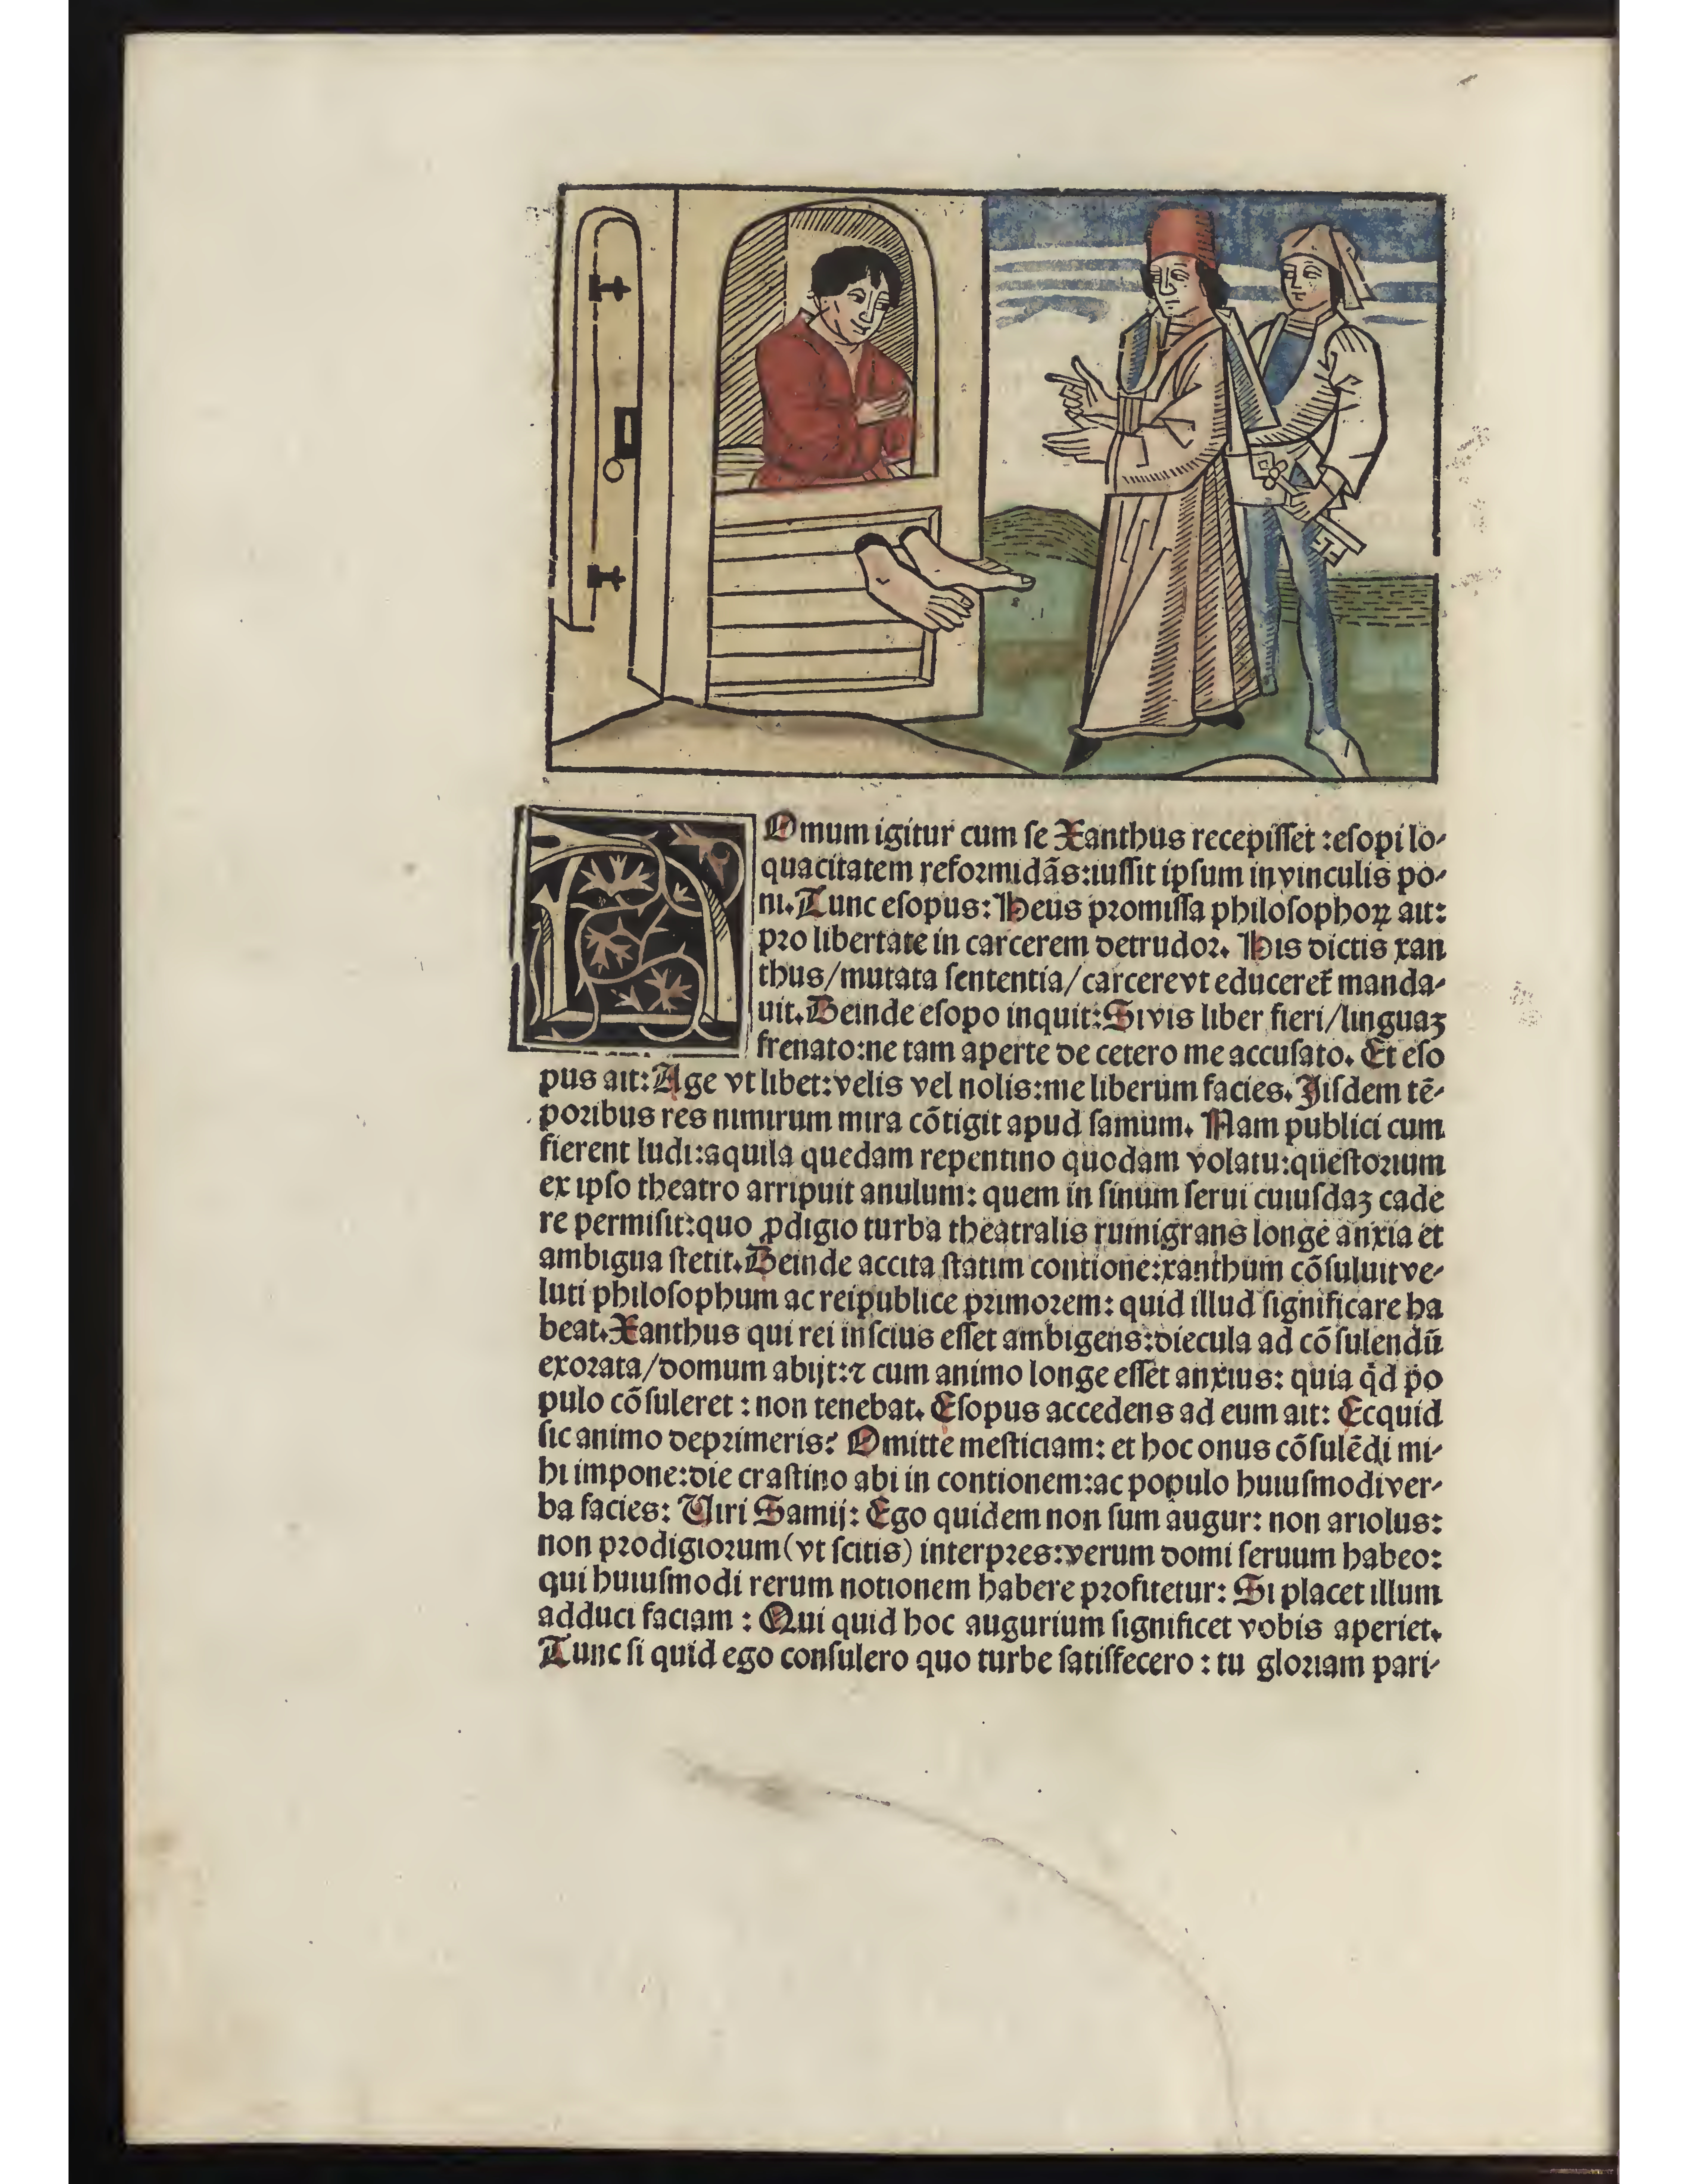 DOmum igitur cum ſe Xanthus recepiſſet :eſopi lo-
quacitatem reformidãs:iuſſit ipſum in vinculis po-
ni. Tunc eſopus: Heus promiſſa philoſophoꝝ ait:
pro libertate in carcerem detrudor. His dictis xan
thus/mutata ſententia/carcere vt educeret̃ manda-
uit. Deinde eſopo inquit: Si vis liber fieri/linguaꝫ
frenato:ne tam aperte de cetero me accuſato. Et eſo
pus ait: Age vt libet:velis vel nolis:me liberum facies. Jiſdem tẽ-
poribus res nimirum mira cõtigit apud ſamum. Nam publici cum
fierent ludi:aquila quedam repentino quodam volatu:queſtorium
ex ipſo theatro arripuit anulum: quem in ſinum ſerui cuiuſdaꝫ cade
re permiſit:quo ꝓdigio turba theatralis rumigrans longe anxia et
ambigua ſtetit. Deinde accita ſtatim contione:xanthum cõſuluit ve-
luti philoſophum ac reipublice primorem: quid illud ſignificare ha
beat. Xanthus qui rei inſcius eſſet ambigens:diecula ad cõſulendũ
exorata/domum abijt:⁊ cum animo longe eſſet anxius: quia qd̓ po
pulo cõſuleret : non tenebat. Eſopus accedens ad eum ait: Ecquid
ſic animo deprimeris? Omitte meſticiam: et hoc onus cõſulẽdi mi-
hi impone:die craſtino abi in contionem:ac populo huiuſmodi ver-
ba facies: Uiri Samij: Ego quidem non ſum augur: non ariolus:
non prodigiorum (vt ſcitis) interpres:verum domi ſeruum habeo:
qui huiuſmodi rerum notionem habere profitetur: Si placet illum
adduci faciam : Qui quid hoc augurium ſignificet vobis aperiet.
Tunc ſi quid ego conſulero quo turbe ſatiſfecero : tu gloriam pari-